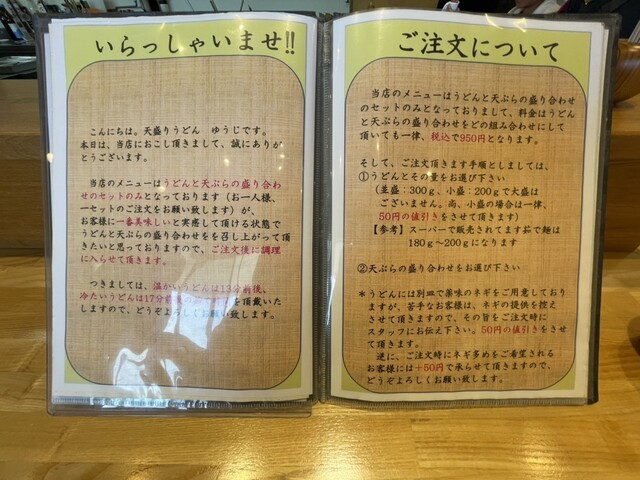 いらっしゃいませ!!
こんにちは。天盛りうどん ゆうじです。
本日は、当店におこし頂きまして、誠にありが
とうございます。
当店のメニューはうどんと天ぷらの盛り合わ
せのセットのみとなっております（お一人様、
一セットのご注文をお願い致します）が、
お客様に一番美味しいと実感して頂ける状態で
うどんと天ぷらの盛り合わせをを召し上がって頂
きたいと思っておりますので、ご注文後に調理
に入らせて頂きます。
つきましては、温かいうどんは13分前後、
冷たいうどんは17分前後 を頂戴いた
しますので、どうぞよろしくお願い致します。
ご注文について
当店のメニューはうどんと天ぷらの盛り合わせ
のセットのみとなっておりまして、料金はうどん
と天ぷらの盛り合わせをどの組み合わせにして
頂いても一律、税込で950円となります。
そして、ご注文頂きます手順としましては、
①うどんとその量をお選び下さい
（並盛：300g、小盛：200gで大盛は
ございません。尚、小盛の場合は一律、
50円の値引きをさせて頂きます）
【参考】スーパーで販売されてます茹で麺は
180g～200gになります
②天ぷらの盛り合わせをお選び下さい
＊うどんには別皿で薬味のネギをご用意しており
ますが、苦手なお客様は、ネギの提供を控え
させて頂きますので、その旨をご注文時に
スタッフにお伝え下さい。50円の値引きをさせ
て頂きます。
逆に、ご注文時にネギ多めをご希望される
お客様には＋50円で承らせて頂きますので、
どうぞよろしくお願い致します。